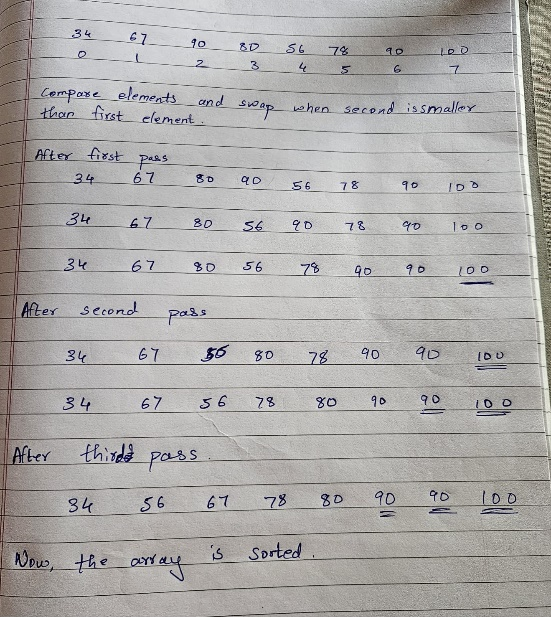 34 67 90 80 56 78 90 100
0 1 2 3 4 5 6 7
Compare elements and swap when second is smaller
than first element.
After first pass
34 67 80 90 56 78 90 100
34 67 80 56 90 78 90 100
34 67 80 56 78 90 90 100
After second pass
34 67 56 80 78 90 90 100
34 67 56 78 80 90 90 100
After third pass.
34 56 67 78 80 90 90 100
Now, the array is sorted.